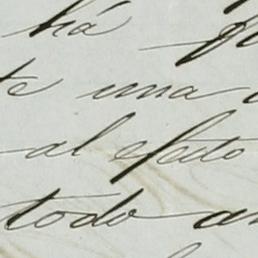 há
te una
al efecto
todo